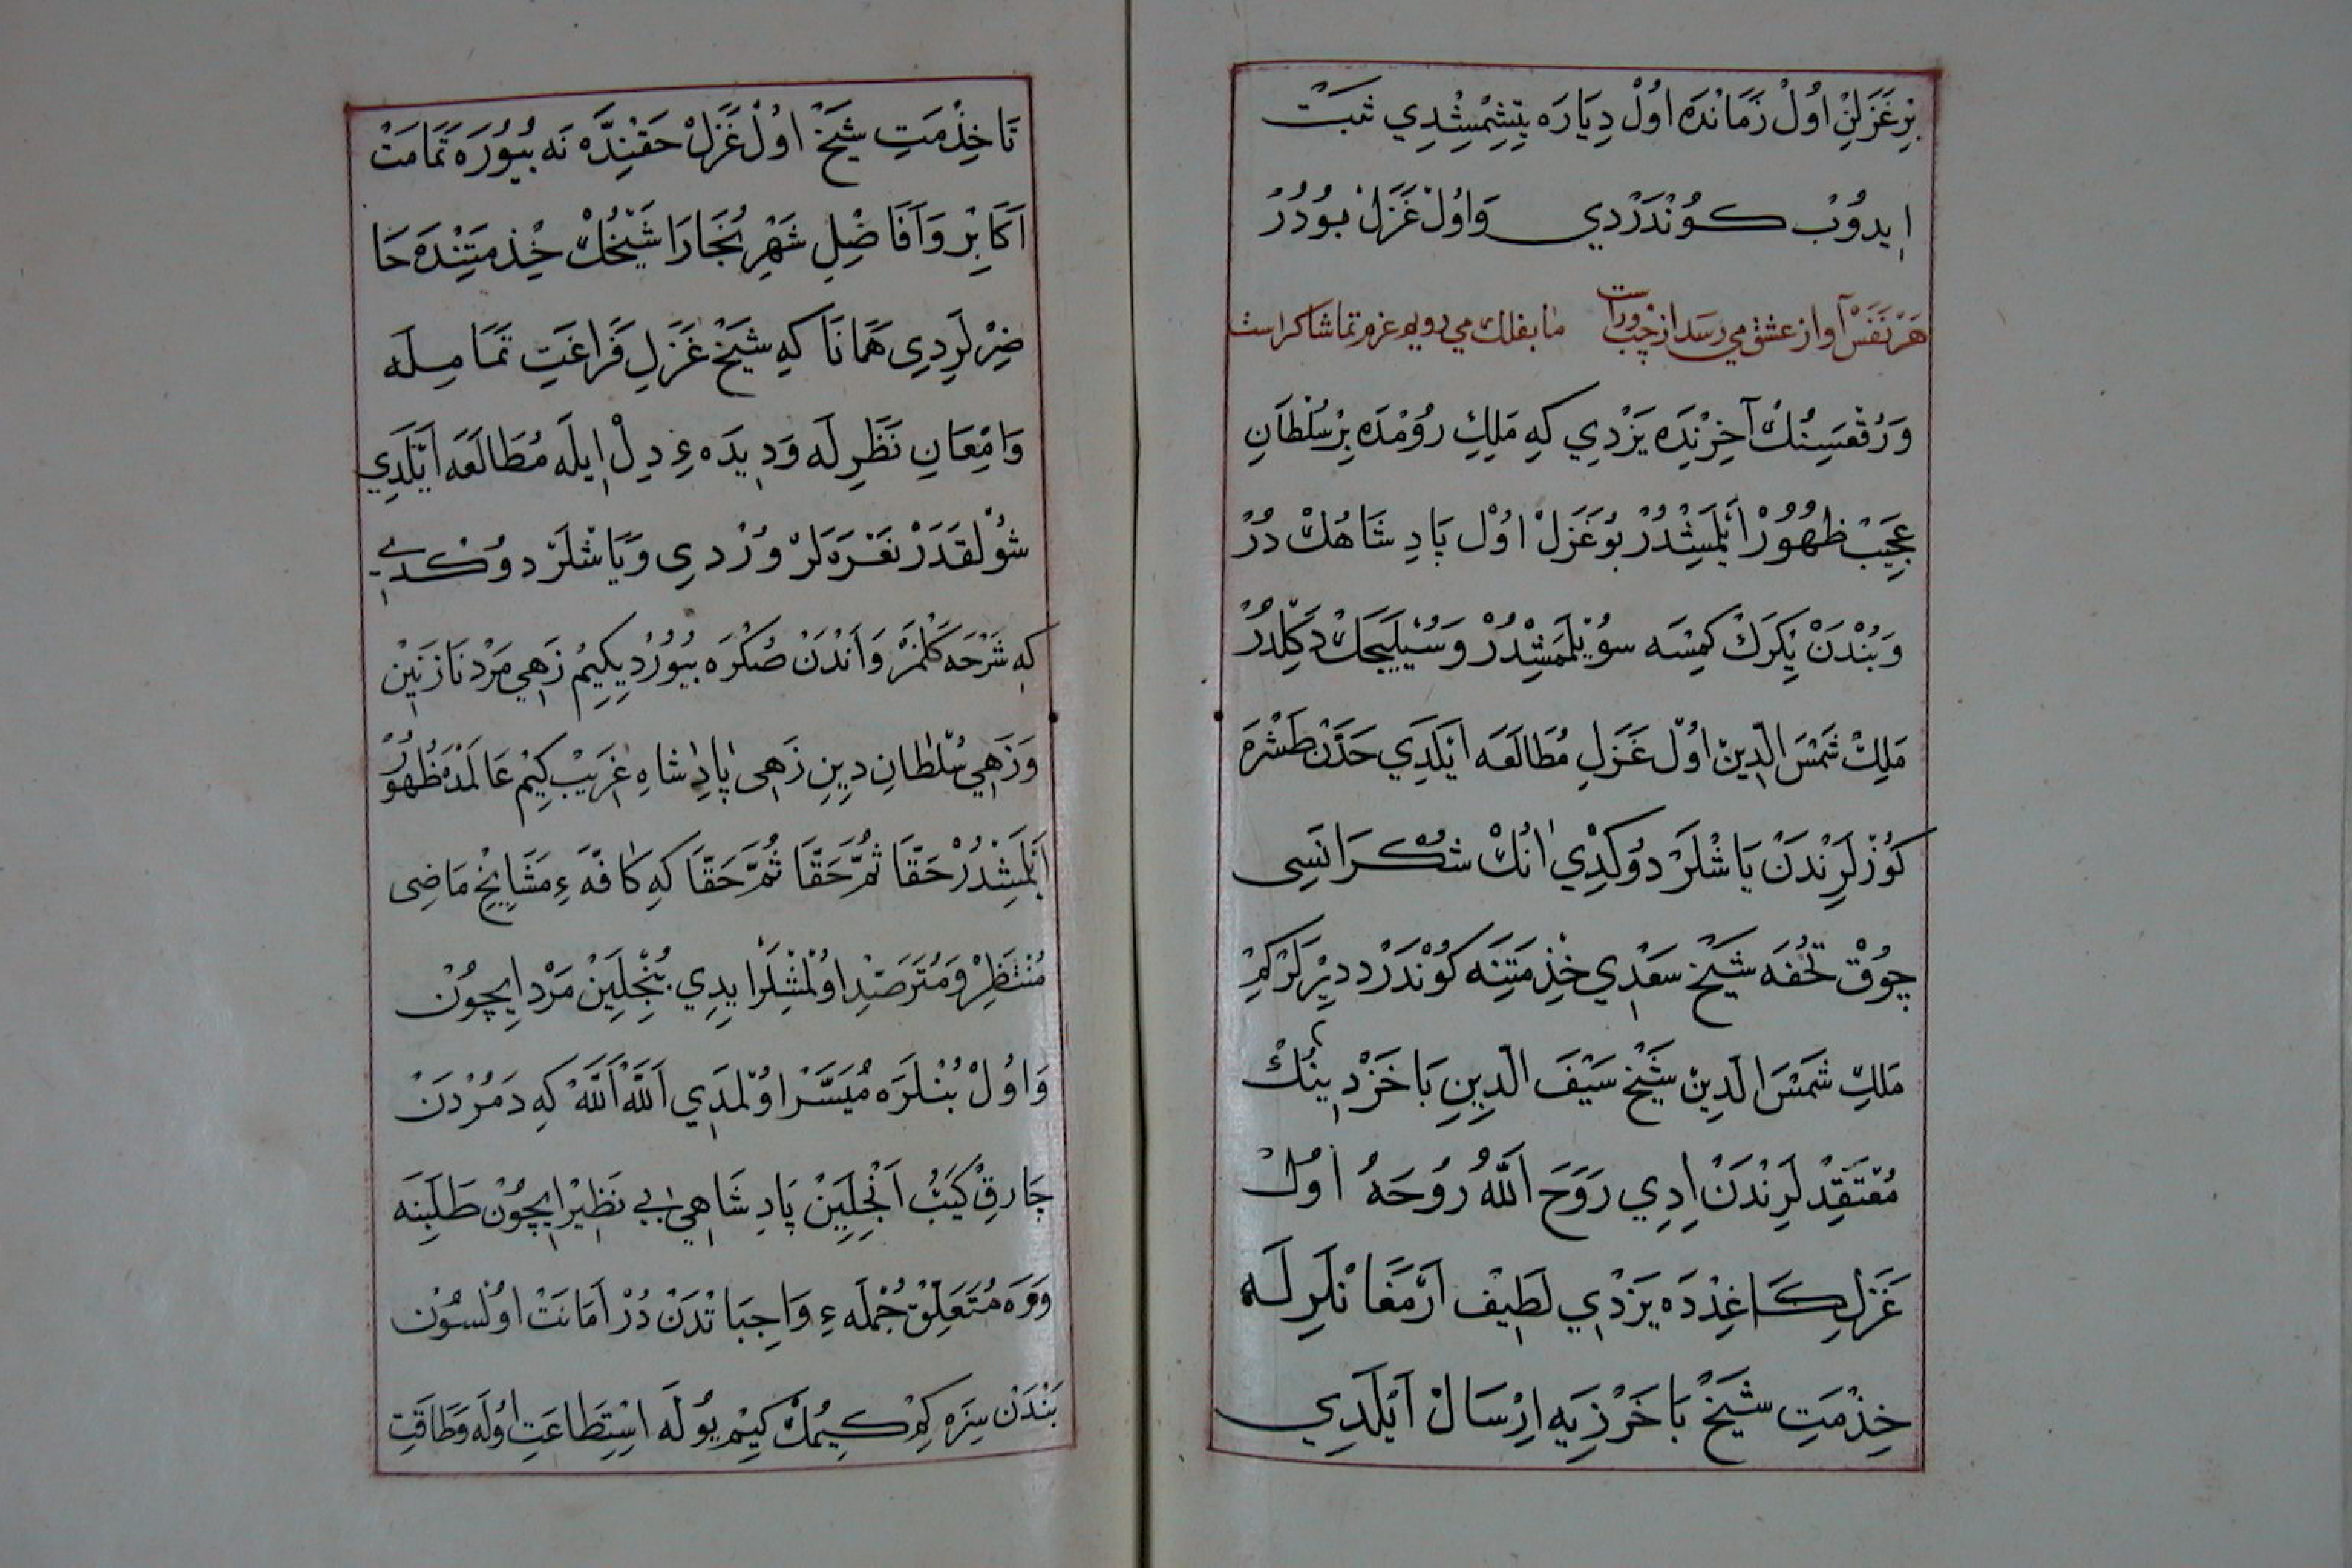 بِرْ غَزَلِنْ اُولْ زَمَانْدَه اُولْ دِيَارَه يِتِشْمِشْدِي ثبَتْ
اِيدُوبْ كُونْدَرْدِي وَاُولْ غَزَلْ بُودُرْ
هَرْ نَفَسْ آواز عشق مي رسد از چپ وراست ما بفلك مي رويم عزم تماشا كراست
وَرُقْعَسِنُكْ آخِرِنْدَه يَزْدِي كِه مَلِكِ رُومْدَه بِرْ سُلْطَانِ
عَجِيبْ ظُهُورْ اَيْلَمِشْدُرْ بُو غَزَلْ اُولْ پَادِشَاهُكْ دُرْ
وَبُنْدَنْ يِكْرَكْ كِمْسَه سُويْلَمَمِشْدُرْ وَسُيْلَييَجَكْ دَكِلْدُرْ
مَلِكْ شَمْسَ الدِّينْ اُولْ غَزَلِ مُطَالَعَه اَيْلَدِي حَدَّنْ طَشْرَه
كُوزْلَرِنْدَنْ يَاشْلَرْ دُوكْدِي اَنُكْ شُكْرَانَسِى
چُوقْ تُحْفَه شَيْخْ سَعْدِي خِذْمَتِنَه كُونْدَرْدِ دِيرْلَرْ كِمْ
مَلِكِ شَمْسَ الدِينْ شَيْخْ سَيْفَ الدِّينِ بَاخَرْزِينُكْ
مُعْتَقِدْ لَرِنْدَنْ اِدِي رَوَّحَ اَللّٰهُ رُوحَهُ اُولْ
غَزَلِ كَاغِذْدَه يَزْدِي لَطِيفْ اَرْمَغَانْلَرِلَه
خِذْمَتِ شَيْخْ بَاخَرْزِيَه اِرْسَالْ اَيْلَدِي
تَا خِذْمَتِ شَيْخْ اُولْ غَزَلْ حَقِنْدَه نَه بُيُورَه تَمَامَتْ
اَكَابِرْ وَاَفَاضِلِ شَهْرِ بُخَارَا شَيْخُكْ خِذْمَتِنْدَه حَا
ضِرْلَرِدِي هَمَانَا كِه شَيْخْ غَزَلِ فَرَاغَتِ تَمَامِلَه
وَاِمْعَانِ نَظَرِلَه وَدِيدَهءِ دِلْ اِيلَه مُطَالَعَه اَيْلَدِي
شُولْقَدَرْ نَعْرَه لَرْ وُرْدِى وَيَاشْلَرْ دُوكْدِي
كِه شَرْحَه كَلْمَزْ وَاَنْدَنْ صُكْرَه بُيُورْدِيكِيمْ زَهِي مَرْدِ نَازَنِينْ
وَزَهِي سُلْطَانِ دِينِ زَهِى پَادِشَاهِ غَرِيبْ كِيمْ عَالَمْدَه ظُهُورْ
اَيْلَمِشْدُرْ حَقًّا ثُمَّ حَقًّا ثُمَّ حَقًّا كِه كَافَّهءِ مَشَايِخِ مَاضِى
مُنْتَظِرْ وَمُتَرَصِّدِ اُولْمُشْلَرْ اِيدِي بُنْجِلَيِنْ مَرْدْ اِيچُونْ
وَاُولْ بُنْلَرَه مُيَسَّرْ اُولْمَدِي اَللّٰهْ اَللّٰهْ كِه دَمُرْدَنْ
چَارِقْ كَيُبْ اَنْجِلَيِنْ پَادِشَاهِي بِي نَظِيرْ اِيچُونْ طَلَبِنَه
وَرَه مُتَعَلِّقْ جُمْلَهءِ وَاجِبَاتْدَنْ دُرْ اَمَانَتْ اُولْسُونْ
بَنْدَنْ سِزَه كِمْ كِيمُكْ كِيمْ يُولَه اِسْتِطَاعَتِ اُولَه وَطَاقَتِ